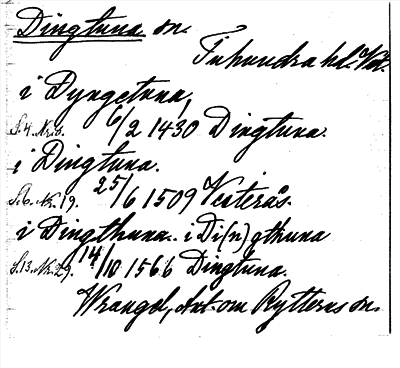 Dingtuna sn.
Tuhundra hd. Vstm.
i Dyngetuna,
S. 4. Nr. 6. 6/2 1430 Dingtuna.
i Dingtuna.
S. 6. Nr. 19. 25/6 1509 Västerås.
i Dingthuna. i Di(n)gthuna
S. 13. Nr. 29. 14/10 1566 Dingtuna.
Wrangel, Ant. om Rytterns sn.